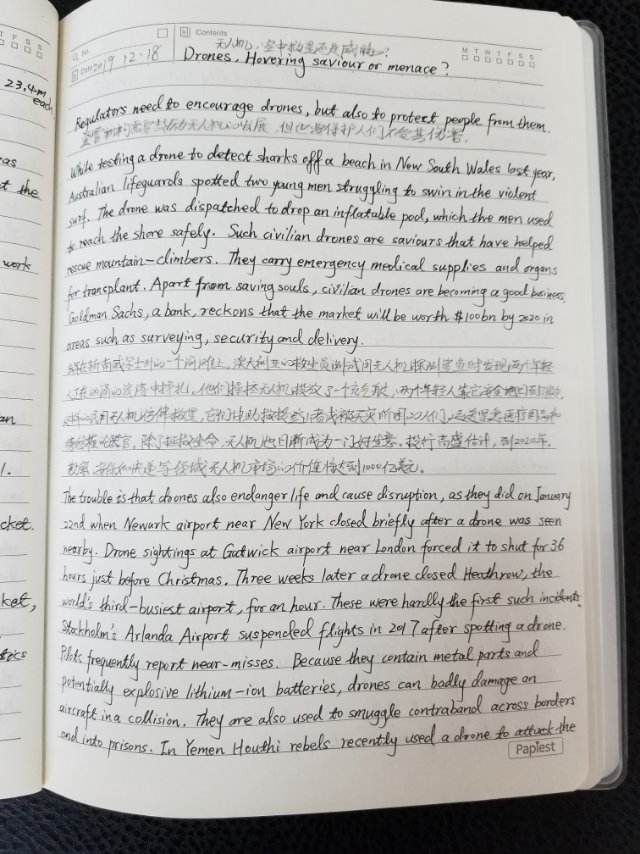 No.
Contents
M T W T F S S
Date 2019 12·18
无人机，空中救星还是威胁？
Drones, Hovering saviour or menace?
23.4m
each
Regulators need to encourage drones, but also to protect people from them.
监管机构需鼓励无人机的发展，但也要保护人们不受其伤害。
While testing a drone to detect sharks off a beach in New South Wales last year,
Australian lifeguards spotted two young men struggling to swin in the violent
surf. The drone was dispatched to drop an inflatable pod, which the men used
to reach the shore safely. Such civilian drones are saviours that have helped
rescue mountain-climbers. They carry emergency medical supplies and organs
for transplant. Apart from saving souls, civilian drones are becoming a good business.
Goldman Sachs, a bank, reckons that the market will be worth $100bn by 2020 in
areas such as surveying, security and delivery.
去年在新南威尔士州的一个海滩上，澳大利亚的救生员测试用无人机探测鲨鱼时发现两个年轻
人正在汹涌的波涛中挣扎。他们操控无人机投放了一个充气舱，两个年轻人靠它安全地回到了岸边。
这样的民用无人机倍伴救星，它们帮助救援登山者或被天灾所困的人们，运送紧急医疗用品和
待移植的器官。除了拯救生命，无人机也日渐成为一门好生意。投行高盛估计，到2020年，
勘察、安保和快递等领域无人机市场的价值将达到1000亿美元。
The trouble is that drones also endanger life and cause disruption, as they did on January
22nd when Newark airport near New York closed briefly after a drone was seen
nearby. Drone sightings at Gatwick airport near London forced it to shut for 36
hours just before Christmas. Three weeks later a drone closed Heathrow, the
world's third-busiest airport, for an hour. These were hardly the first such incidents.
Stockholm's Arlanda Airport suspended flights in 2017 after spotting a drone.
Pilots frequently report near-misses. Because they contain metal parts and
potentially explosive lithium-ion batteries, drones can badly damage an
aircraft in a collision. They are also used to smuggle contraband across borders
and into prisons. In Yemen Houthi rebels recently used a drone to attack the
Papiest
t the
work
an
1.
cket.
ket,
tics